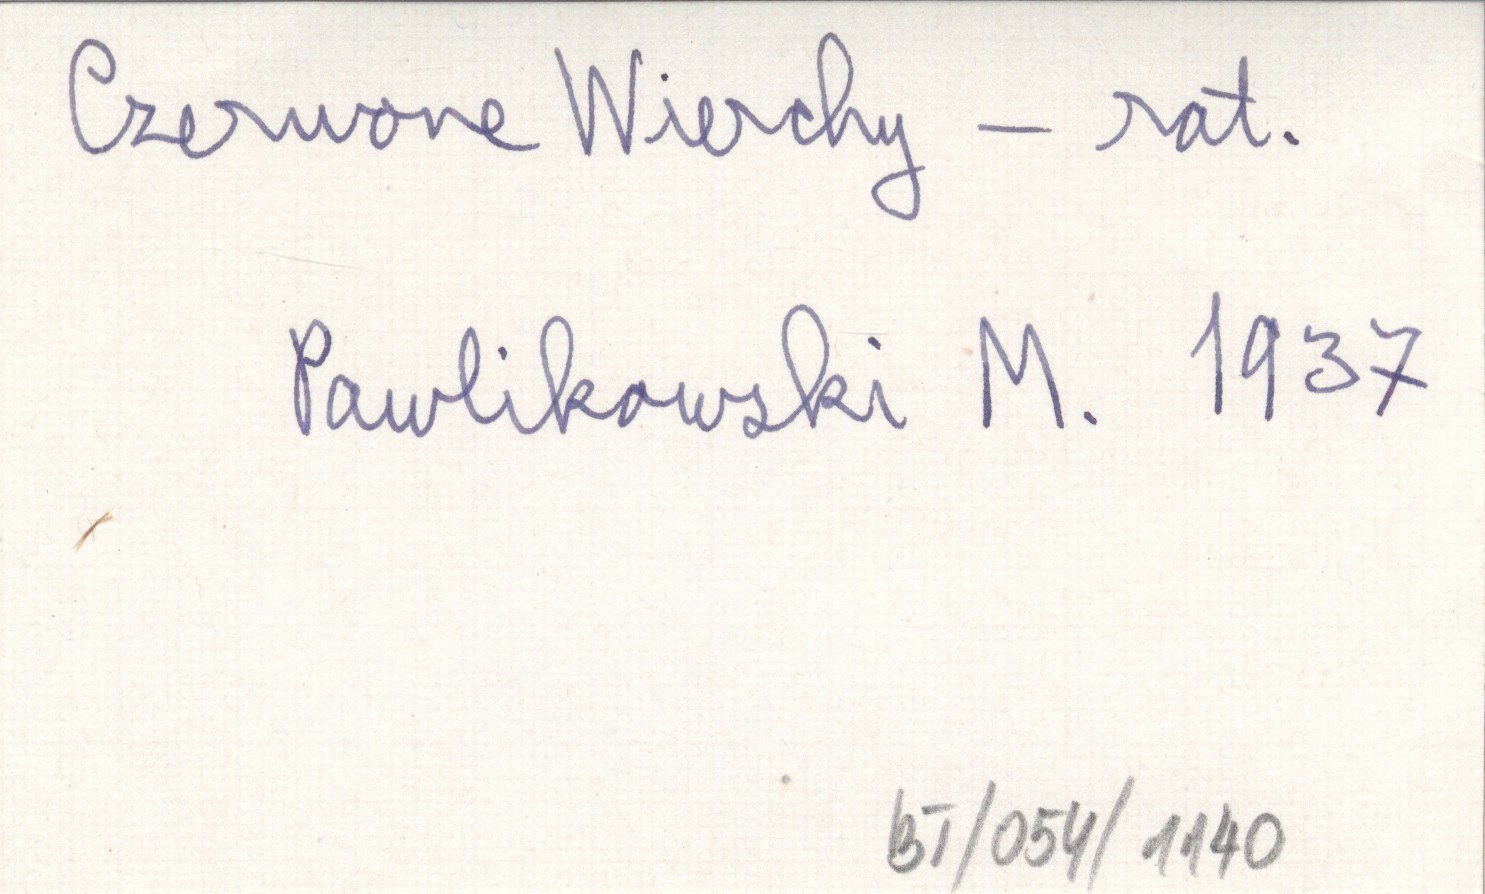 Czerwone Wierchy – rat.
Pawlikowski M. 1937
BT/054/1140